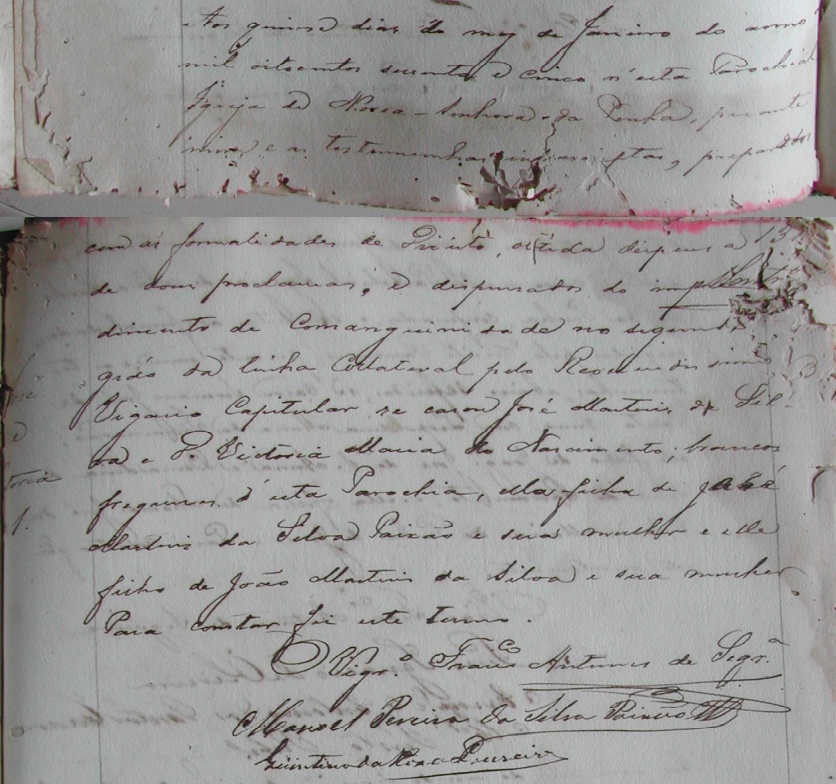 Aos quinse dias do mez de Janeiro do anno
mil oitocentos secenta e cinco n'esta Parochial
Igreja de Nossa Senhora da Penha, perante
mim e as testemunhas, preparados
com as formalidades de Direito, dispensa
de dous proclamas, e dispensados do impe
dimento de Comsanguinidade no segundo
gráo da linha Collateral pelo Reverendissimo
Vigario Capitular se casou José Martins da Sil-
va e D. Victoria Maria do Nascimento, brancos
freguezes d'esta Parochia, ella filha de José
Martins da Silva Paixão e sua mulher e elle
filho de João Martins da Silva e sua mulher
Para constar fiz este termo.
O Vigr.º Franc.co Antunes de Seqr.ª
Manoel Pereira da Silva Paixão